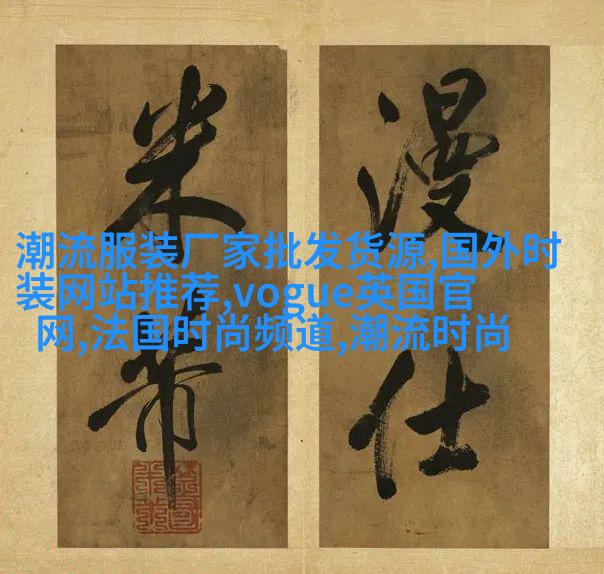 漫仕
米芾
潮流服装厂家批发货源,国外时
装网站推荐,vogue英国官
网,法国时尚频道,潮流时尚